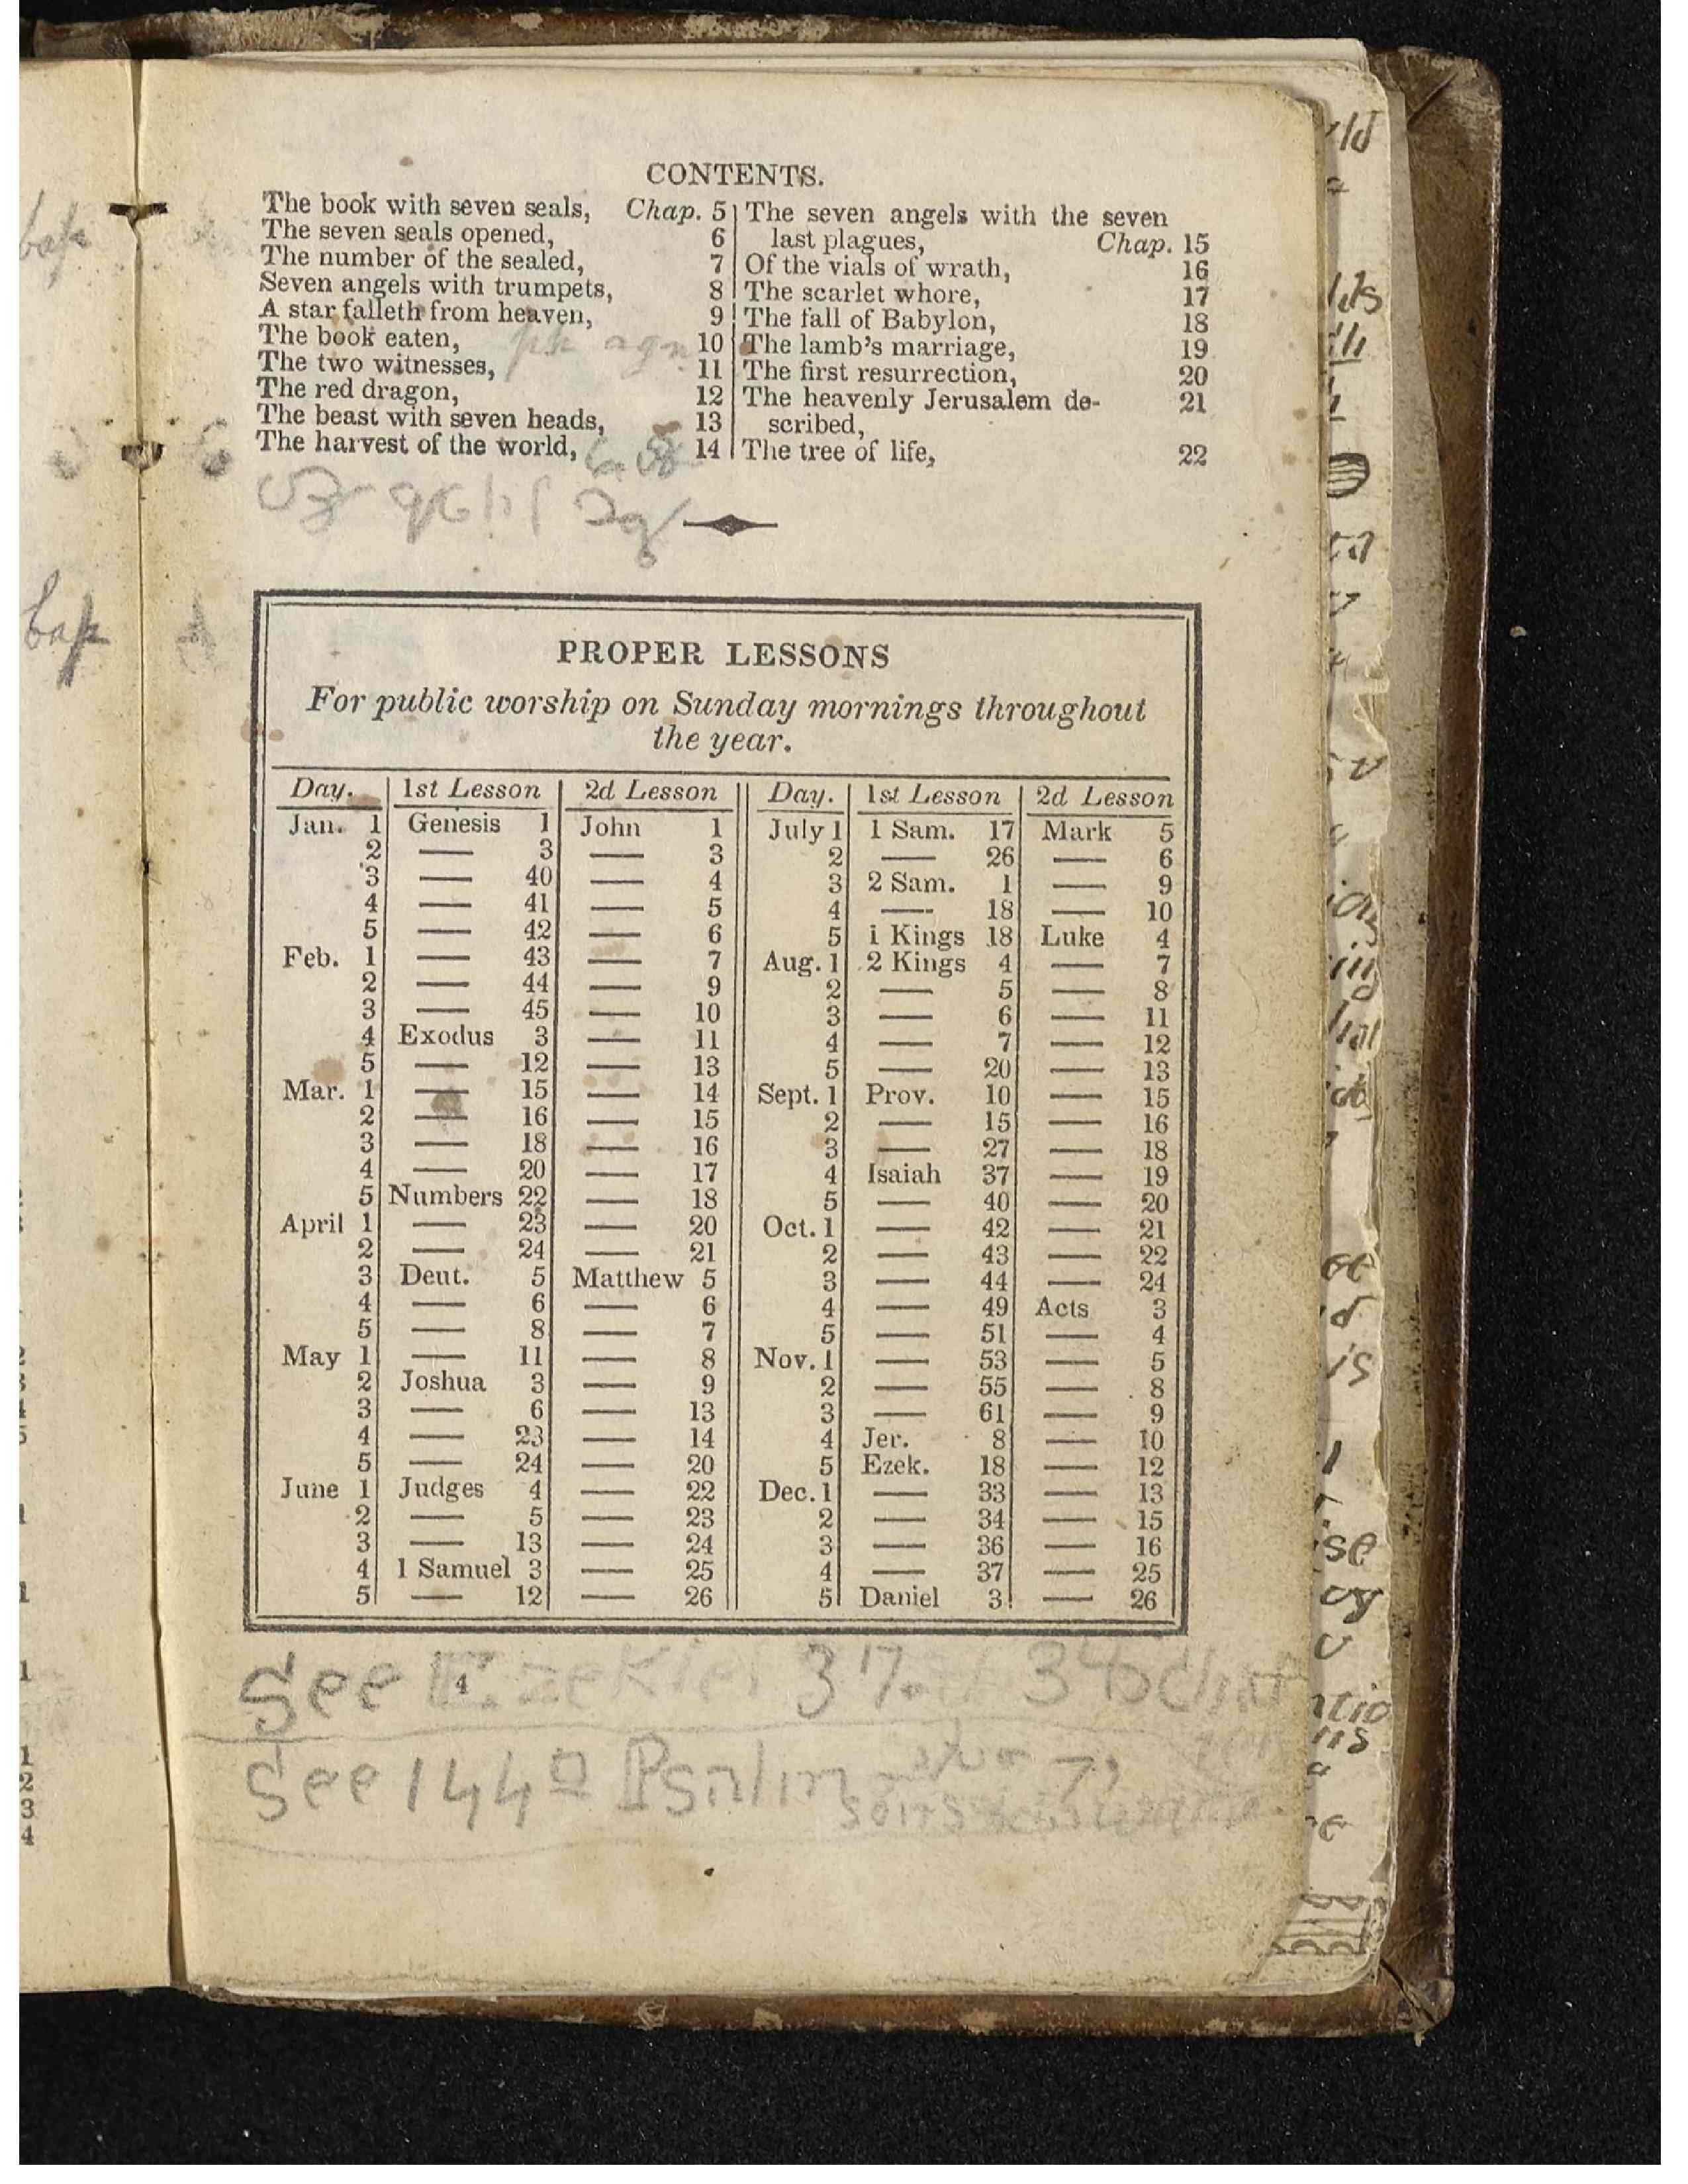 CONTENTS.
The book with seven seals, Chap. 5
The seven seals opened, 6
The number of the sealed, 7
Seven angels with trumpets, 8
A star falleth from heaven, 9
The book eaten, 10
The two witnesses, 11
The red dragon, 12
The beast with seven heads, 13
The harvest of the world, 14
The seven angels with the seven
last plagues, Chap. 15
Of the vials of wrath, 16
The scarlet whore, 17
The fall of Babylon, 18
The lamb's marriage, 19
The first resurrection, 20
The heavenly Jerusalem de- 21
scribed,
The tree of life, 22
PROPER LESSONS
For public worship on Sunday mornings throughout
the year.
Day. 1st Lesson 2d Lesson Day. 1st Lesson 2d Lesson
Jan. 1 Genesis 1 John 1 July 1 1 Sam. 17 Mark 5
2 — 3 — 3 2 — 26 — 6
3 — 40 — 4 3 2 Sam. 1 — 9
4 — 41 — 5 4 — 18 — 10
5 — 42 — 6 5 1 Kings 18 Luke 4
Feb. 1 — 43 — 7 Aug. 1 2 Kings 4 — 7
2 — 44 — 9 2 — 5 — 8
3 — 45 — 10 3 — 6 — 11
4 Exodus 3 — 11 4 — 7 — 12
5 — 12 — 13 5 — 20 — 13
Mar. 1 — 15 — 14 Sept. 1 Prov. 10 — 15
2 — 16 — 15 2 — 15 — 16
3 — 18 — 16 3 — 27 — 18
4 — 20 — 17 4 Isaiah 37 — 19
5 Numbers 22 — 18 5 — 40 — 20
April 1 — 23 — 20 Oct. 1 — 42 — 21
2 — 24 — 21 2 — 43 — 22
3 Deut. 5 Matthew 5 3 — 44 — 24
4 — 6 — 6 4 — 49 Acts 3
5 — 8 — 7 5 — 51 — 4
May 1 — 11 — 8 Nov. 1 — 53 — 5
2 Joshua 3 — 9 2 — 55 — 8
3 — 6 — 13 3 — 61 — 9
4 — 23 — 14 4 Jer. 8 — 10
5 — 24 — 20 5 Ezek. 18 — 12
June 1 Judges 4 — 22 Dec. 1 — 33 — 13
2 — 5 — 23 2 — 34 — 15
3 — 13 — 24 3 — 36 — 16
4 1 Samuel 3 — 25 4 — 37 — 25
5 — 12 — 26 5 Daniel 3 — 26
See Ezekiel 37
4
See 144 Psalm